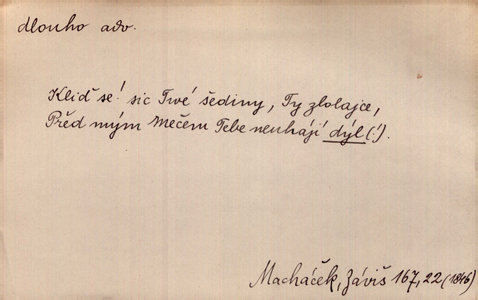 dlouho adv.
Kliď se! sic Tvé šediny, Ty zlolajce,
Před mým mečem Tebe neuhájí dýl (!).
Macháček, Záviš 167,22 (1846)